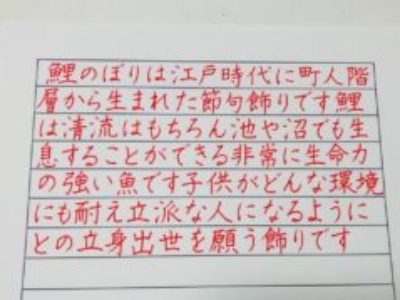 鯉のぼりは江戸時代に町人階
層から生まれた節句飾りです鯉
は清流はもちろん池や沼でも生
息することができる非常に生命力
の強い魚です子供がどんな環境
にも耐え立派な人になるように
との立身出世を願う飾りです